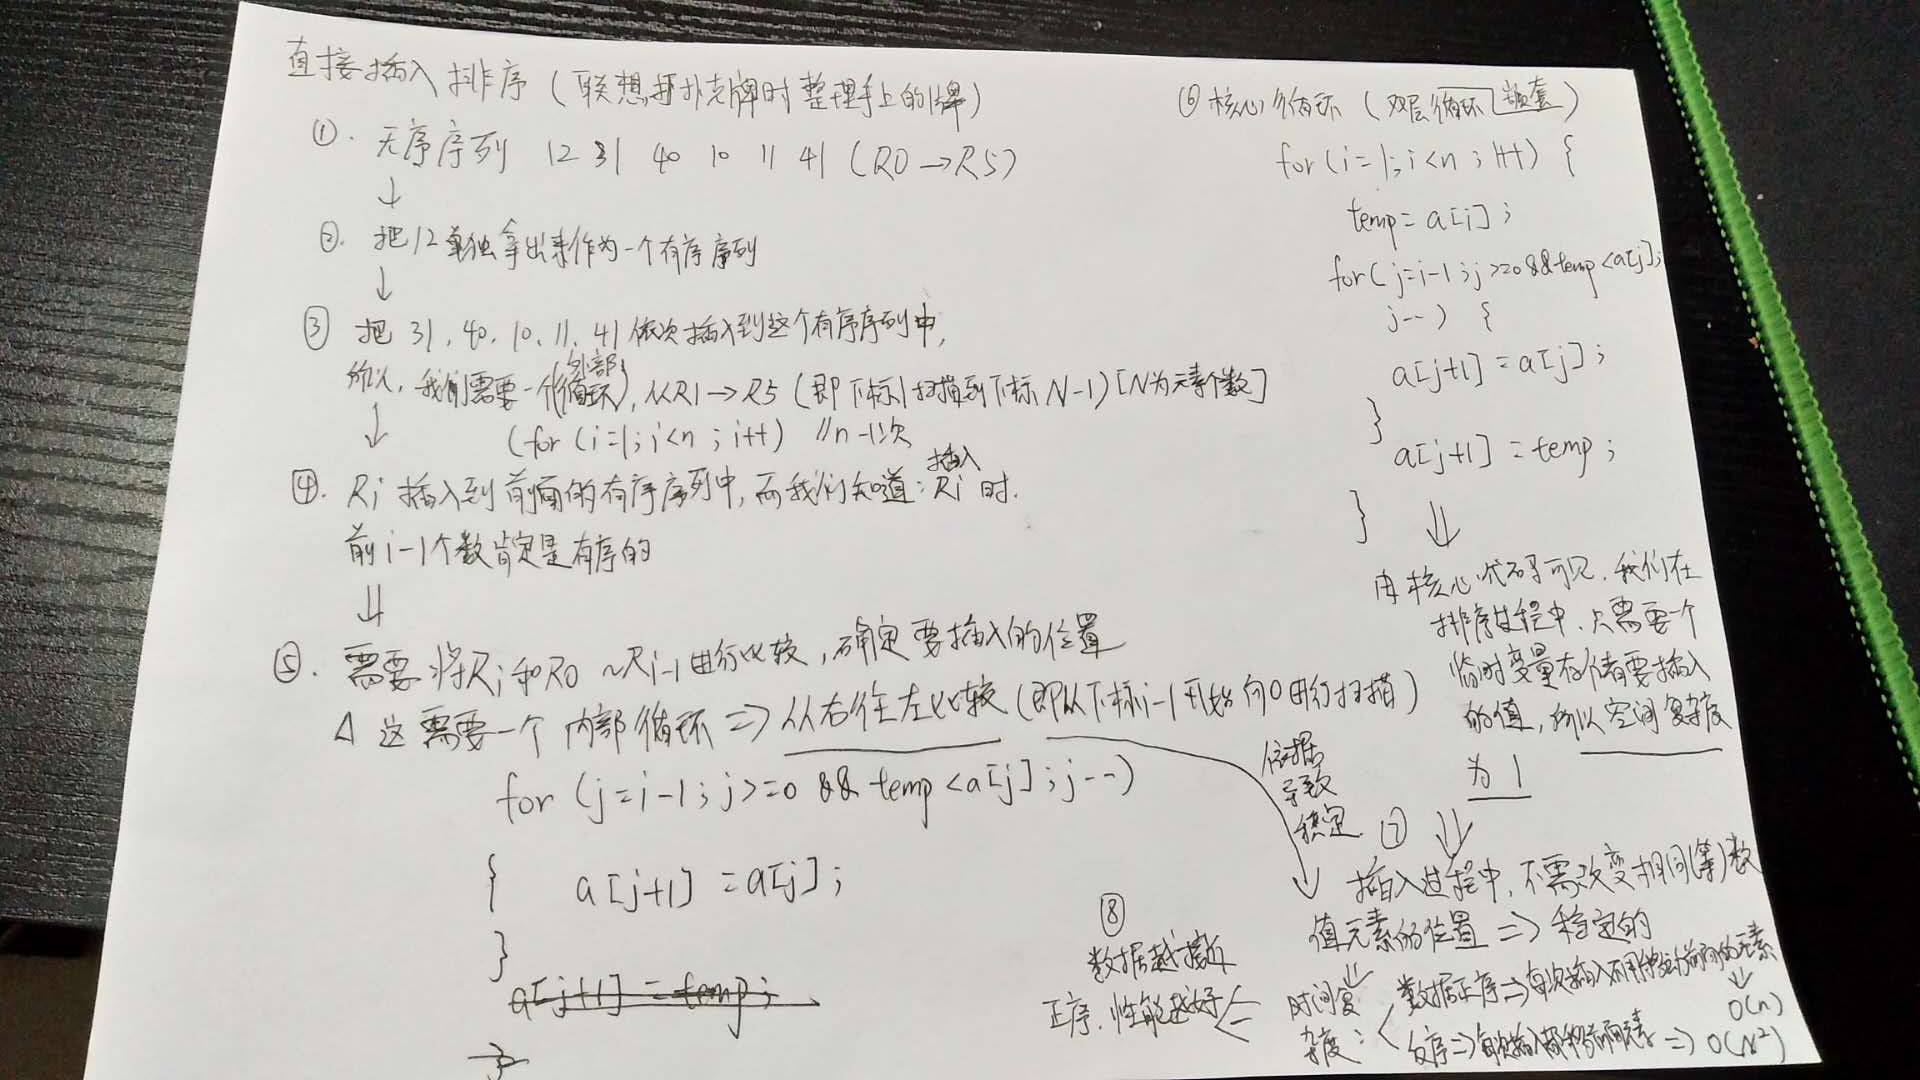 直接插入排序（联想打扑克牌时整理手上的牌）
①. 无序序列 12 31 40 10 11 41 (R0→R5)
↓
②. 把12单独拿出来作为一个有序序列
↓
③ 把 31, 40, 10, 11, 41 依次插入到这个有序序列中,
所以, 我们需要一个(外部循环), 从R1→R5 (即下标1扫描到下标N-1) [N为元素个数]
↓ (for (i=1; i<n; i++) //n-1次
④. Ri 插入到前面的有序序列中, 而我们知道: 插入Ri时.
前i-1个数肯定是有序的
⇓
⑤. 需要将Ri和R0 ~Ri-1进行比较, 确定要插入的位置
△ 这需要一个内部循环 ⇒ 从右往左比较 (即从下标i-1开始向0进行扫描)
for (j=i-1; j>=0 && temp<a[j]; j--)
{ a[j+1] = a[j];
}
a[j+1] = temp;
}
⑥ 核心循环 (双层循环嵌套)
for (i=1; i<n; i++) {
temp= a[i];
for( j=i-1; j>=0&&temp<a[j];
j--) {
a[j+1] = a[j];
}
a[j+1] = temp;
}
⇓
由核心代码可见, 我们在
排序过程中, 只需要一个
临时变量存储要插入
的值, 所以空间复杂度
为 1
依据
导致
稳定
⑦ ⇓
插入过程中, 不需改变相同(等)数
值元素的位置 ⇒ 稳定的
⇓
时间复
杂度:
数据正序⇒每次插入不用移动前面的元素
⇓
O(n)
反序⇒每次插入都移前面元素 ⇒ O(N²)
⑧
数据越接近
正序, 性能越好 ⇐